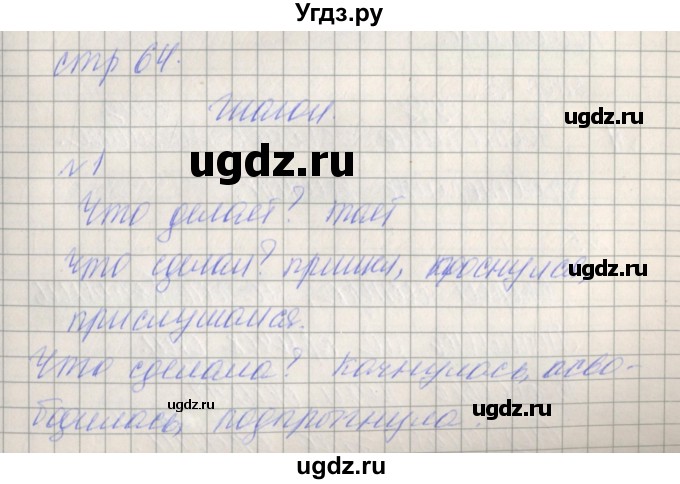 Угдз.ру
стр 64.
ugdz.ru
Глагол.
ugdz.ru
№1
Что делает? тает
Что сделал? пришёл, проснулся,
ugdz.ru
прислушался.
Что сделала? Качнулась, осво-
ugdz.ru
ugdz.ru
бодилась, подпрыгнула.
ugdz.ru